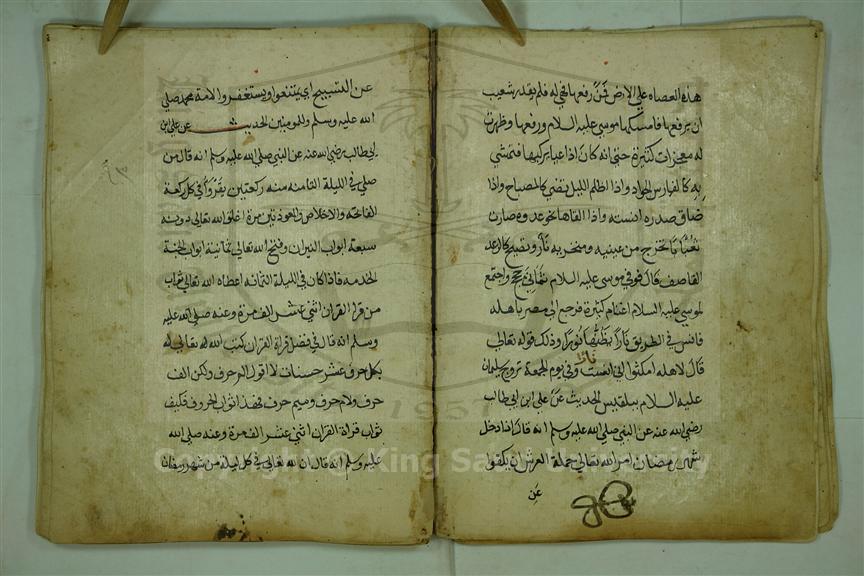 هذه العصاه علي الارض فمن رفعها فهي له فلم يقدر شعيب
ان يرفعها فامسكها موسي عليه السلام ورفعها وظهرت
له معجزات كثيرة حتى انه كان اذا عيا يركبها فتمشي
به كالفارس الجواد واذا اظلم الليل تضي كالمصباح واذا
ضاق صدره انسته واذا القاها تخر وصارت
ثعبانا تخرج من عينيه ومنخريه نار وتصيح كالرعد
القاصف قال فوفي موسي عليه السلام ثماني حجج واجتمع
لموسي عليه السلام اغنام كثيرة فرجع الي مصر باهله
فانس في الطريق نارا يظنها نورا وذلك قوله تعالي
قال لاهله امكثوا اني انست نارا وفي يوم الجمعة تزوج سليمان
عليه السلام ببلقيس الحديث عن علي ابن ابي طالب
رضي الله عنه عن النبي صلي الله عليه وسلم انه قال اذا دخل
شهر رمضان امر الله تعالي حملة العرش ان يكفوا
عن
عن التسبيح اي يمتنعوا ويستغفروا لامة محمد صلي
الله عليه وسلم وللمومنين الحديث عن علي ابن
ابي طالب رضي الله عنه عن النبي صلي الله عليه وسلم انه قال من
صلي في الليلة الثامنه منه ركعتين يقرأ في كل ركعة
الفاتحه والاخلاص والمعوذتين مرة اغلق الله تعالي دونه
سبعة ابواب النيران وفتح الله تعالي ثمانية ابواب الجنة
فاذا كان في الليلة اعطاه الله تعالي ثواب
من قرا القران اثني عشر الف مرة وعنه صلي الله عليه
وسلم انه قال في فضل قراة القران كتب الله تعالي له
بكل حرف عشر حسنات لا اقول الم حرف ولكن الف
حرف ولام حرف وميم حرف فهذا ثواب الحروف فكيف
ثواب قراة القران اثني عشر الف مرة وعنه صلي الله
عليه وسلم انه قال ان لله تعالي في كل ليلة من شهر رمضان
1957
Copyright © King Saud University